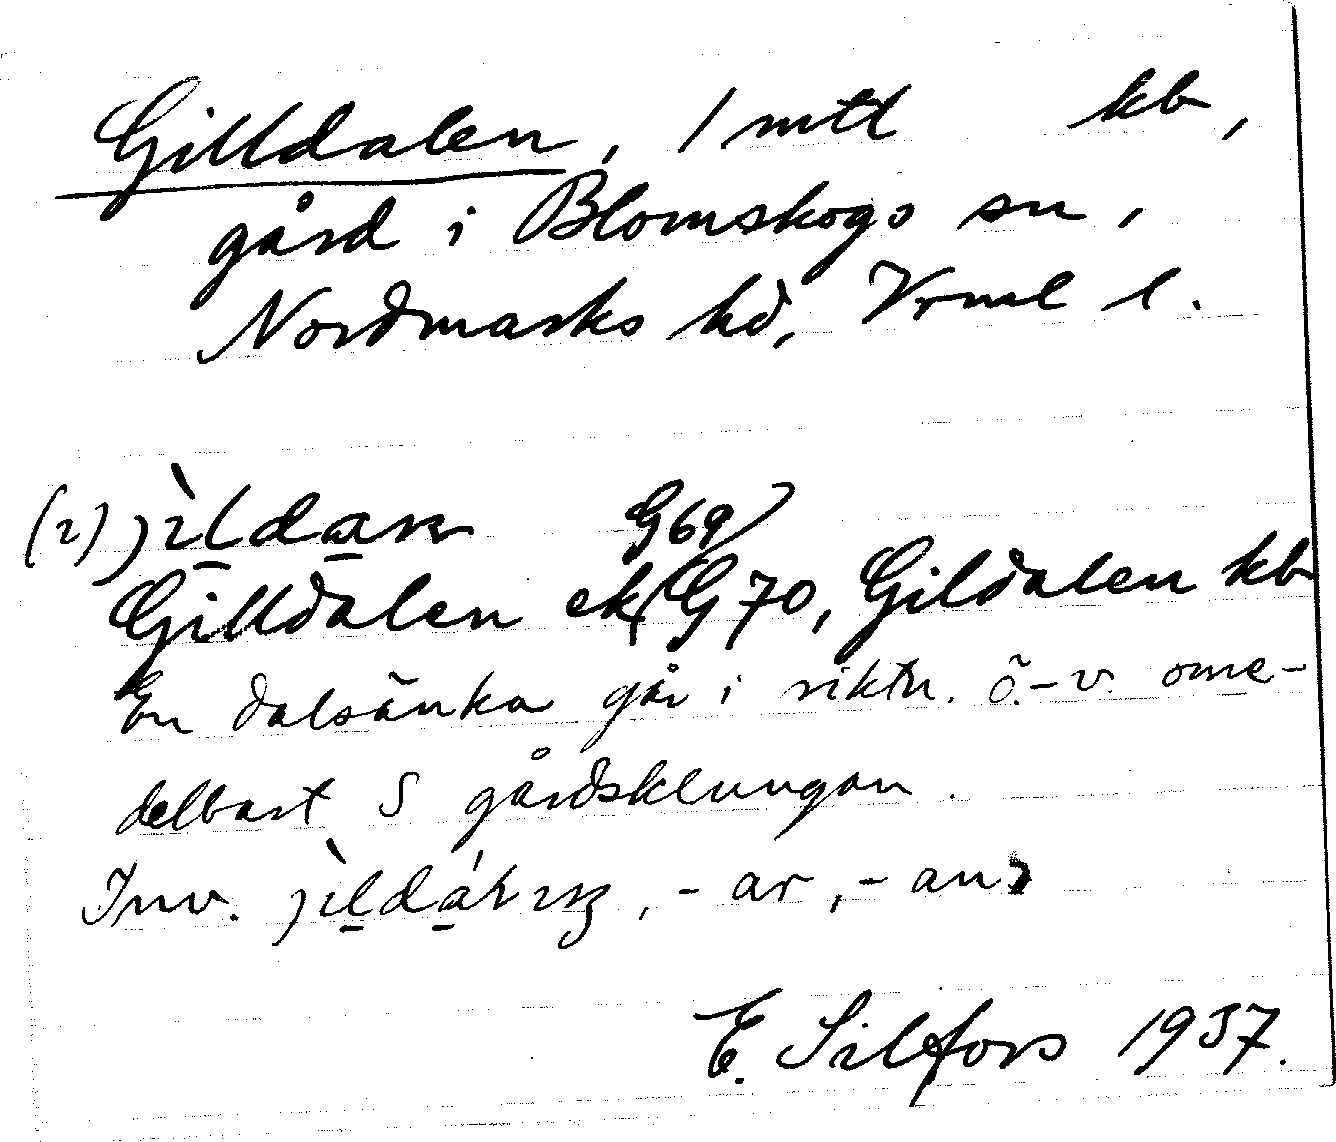 Gilldalen, 1 mtl kb,
gård i Blomskogs sn,
Nordmarks hd, Vrml l.
(2) jìldan G69)
Gilldalen ek (G70, Gildalen kb
En dalsänka går i riktn. ö.-v. ome-
delbart S gårdsklungan.
Inv. , -ar, -anə
E. Silfors 1937.